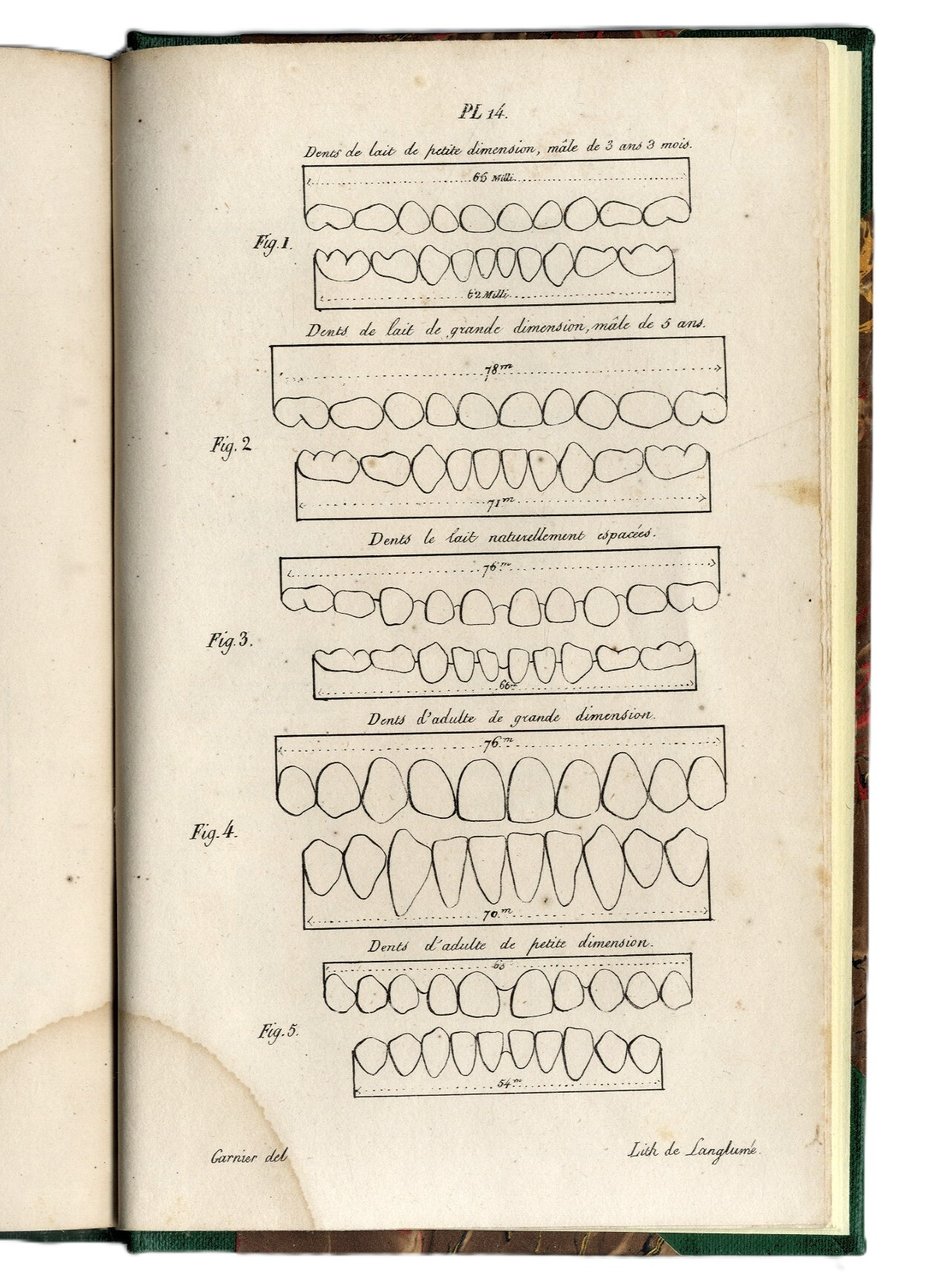 PL 14.
Dents de lait de petite dimension, mâle de 3 ans 3 mois.
66 Milli.
Fig. 1.
62 Milli.
Dents de lait de grande dimension, mâle de 5 ans.
78 m
Fig. 2
71 m
Dents le lait naturellement espacées.
76 m
Fig. 3.
66 m
Dents d'adulte de grande dimension.
76 m
Fig. 4.
70 m
Dents d'adulte de petite dimension.
Fig. 5.
54 m
Garnier del
Lith de Langlumé.